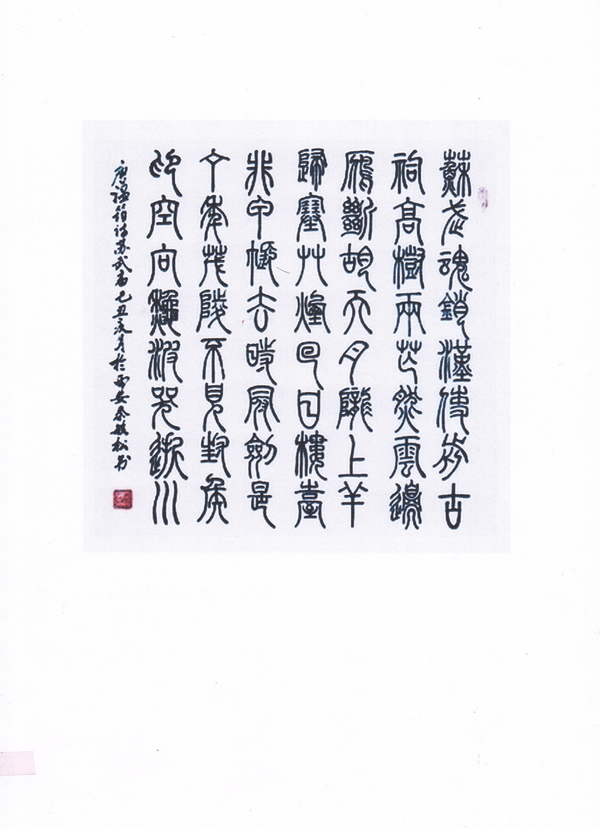 蘇武魂銷漢使前古
祠高樹兩茫然雲邊
雁斷胡天月隴上羊
歸塞艸煙回日樓臺
非甲帳去時冠劍是
丁年茂陵不見封侯
印空向秋波哭逝川
唐温筠诗苏武庙己丑月於西安秦敏松书